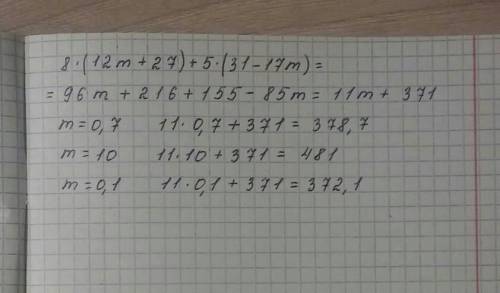 8·(12m+27)+5·(31-17m)=
=96m+216+155-85m=11m+371
m=0,7 11·0,7+371=378,7
m=10 11·10+371=481
m=0,1 11·0,1+371=372,1